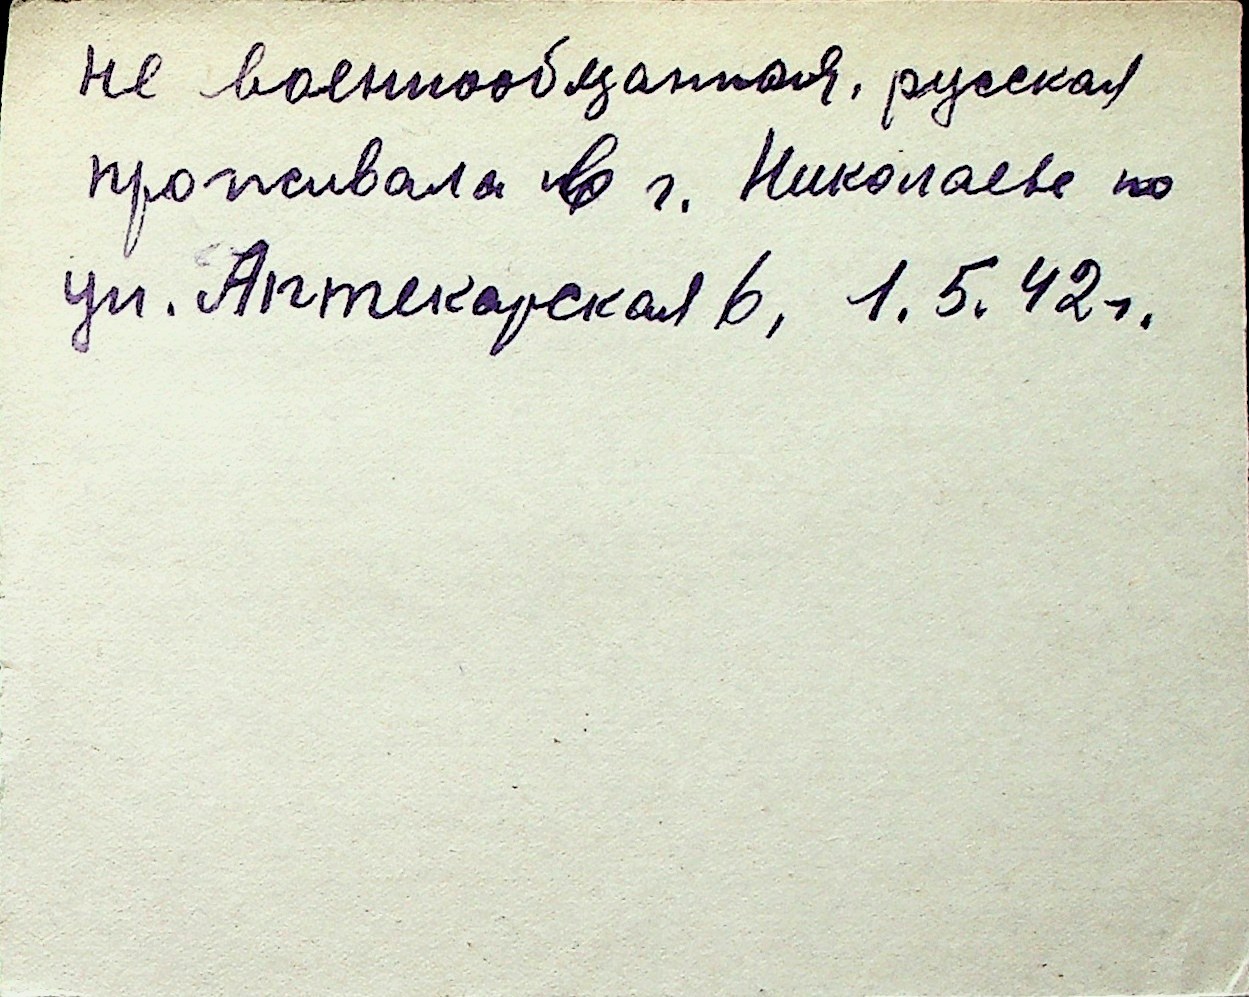 не военнообязанная, русская
проживала в г. Николаеве по
ул. Аптекарская 6, 1.5.42г.